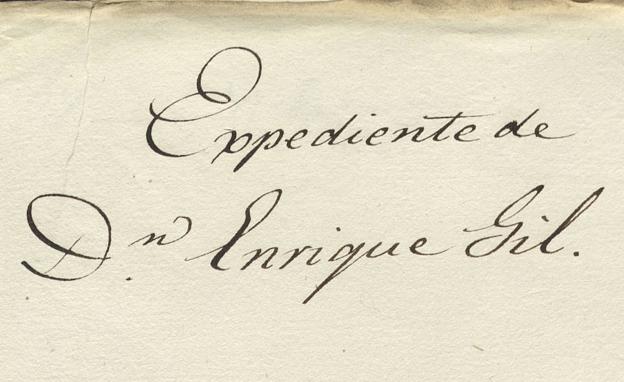 Expediente de
D.ⁿ Enrique Gil.